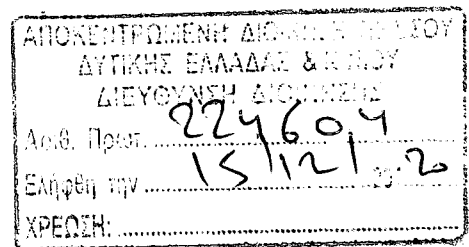 ΑΠΟΚΕΝΤΡΩΜΕΝΗ
ΔΥΤΙΚΗΣ ΕΛΛΑΔΑΣ &
ΔΙΕΥΘΥΝΣΗ
Αριθ. Πρωτ. 224604
Ελήφθη την 15/12/ 20
ΧΡΕΩΣΗ: